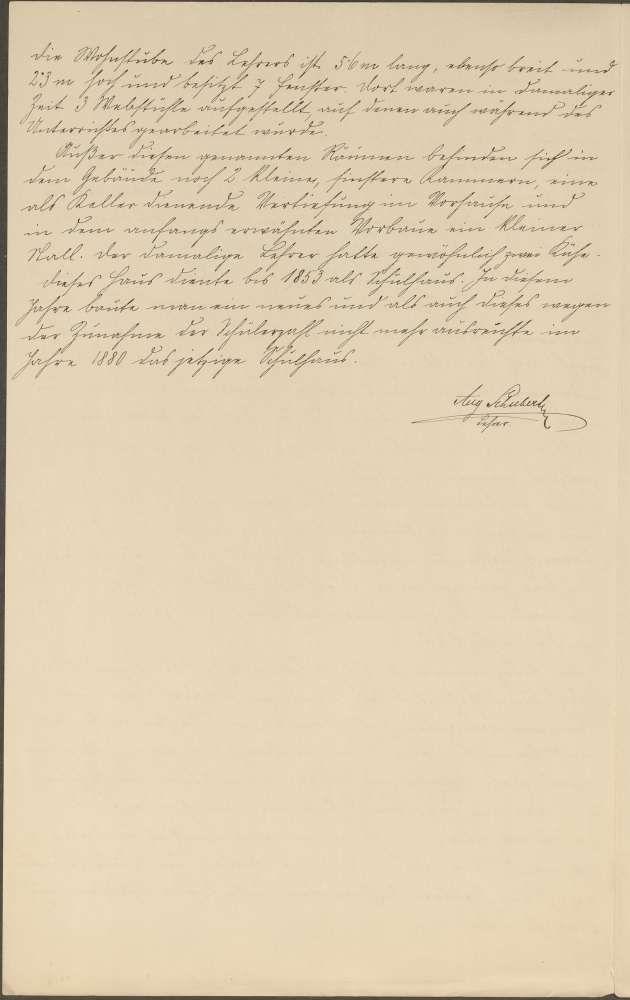 die Wohnstube des Lehrers ist 5·6 m lang, ebenso breit und
2·3 m hoch und besitzt 7 Fenster. Dort waren in damaliger
Zeit 3 Webstühle aufgestellt, auf denen auch während des
Unterrichtes gearbeitet wurde.
Außer diesen genannten Räumen befinden sich in
dem Gebäude noch 2 kleine, finstere Kammern, eine
als Keller dienende Vertiefung im Vorhause und
in dem anfangs erwähnten Vorbaue ein kleiner
Stall. Der damalige Lehrer hatte gewöhnlich zwei Kühe.
Dieses Haus diente bis 1853 als Schulhaus. In diesem
Jahre baute man ein neues und als auch dieses wegen
der Zunahme der Schülerzahl nicht mehr ausreichte im
Jahre 1880 das jetzige Schulhaus.
Aug Schubert
Lehrer